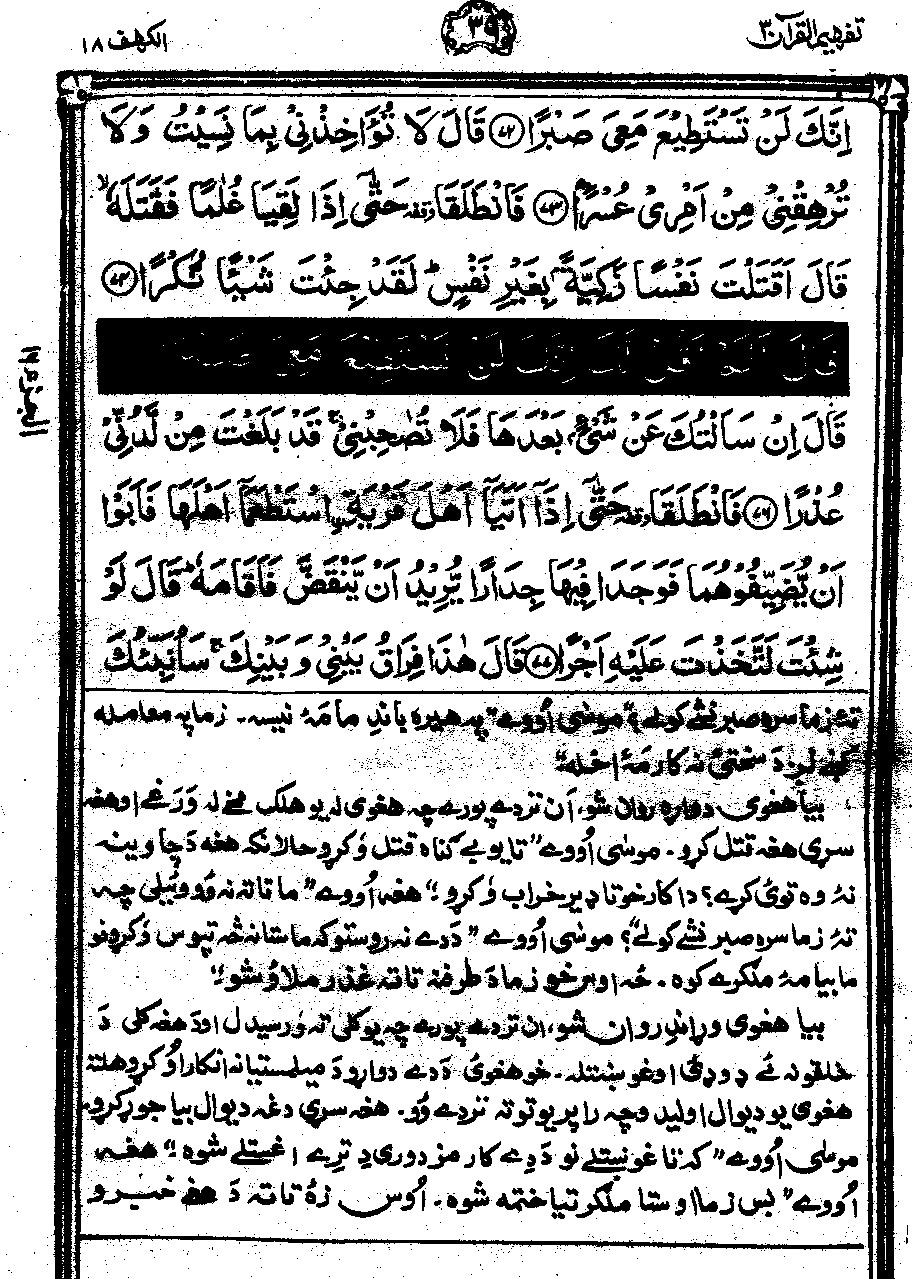 تفهیم القرآن ۳
۳۹
الکهف ۱۸
اِنَّكَ لَنْ تَسْتَطِيْعَ مَعِىَ صَبْرًا ﴿۷۲﴾ قَالَ لَا تُؤَاخِذْنِىْ بِمَا نَسِيْتُ وَلَا
تُرْهِقْنِىْ مِنْ اَمْرِىْ عُسْرًا ﴿۷۳﴾ فَانْطَلَقَا وقفه حَتّٰٓى اِذَا لَقِيَا غُلٰمًا فَقَتَلَهٗ ۙ
قَالَ اَقَتَلْتَ نَفْسًا زَكِيَّةًۢ بِغَيْرِ نَفْسٍ ؕ لَقَدْ جِئْتَ شَيْئًا نُّكْرًا ﴿۷۴﴾
قَالَ اَلَمْ اَقُلْ لَّكَ اِنَّكَ لَنْ تَسْتَطِيْعَ مَعِىَ صَبْرًا
الجزء ۱۶
قَالَ اِنْ سَاَلْتُكَ عَنْ شَىْءٍۭ بَعْدَهَا فَلَا تُصٰحِبْنِىْ ۚ قَدْ بَلَغْتَ مِنْ لَّدُنِّىْ
عُذْرًا ﴿۷۶﴾ فَانْطَلَقَا وقفه حَتّٰٓى اِذَآ اَتَيَآ اَهْلَ قَرْيَةِۨ اسْتَطْعَمَآ اَهْلَهَا فَاَبَوْا
اَنْ يُّضَيِّفُوْهُمَا فَوَجَدَا فِيْهَا جِدَارًا يُّرِيْدُ اَنْ يَّنْقَضَّ فَاَقَامَهٗ ؕ قَالَ لَوْ
شِئْتَ لَتَّخَذْتَ عَلَيْهِ اَجْرًا ﴿۷۷﴾ قَالَ هٰذَا فِرَاقُ بَيْنِىْ وَبَيْنِكَ ۚ سَاُنَبِّئُكَ
تۀ زما سره صبر نشے کولے؟“ موسٰی اُووے ”په هیره باندِ ما مَۀ نیسه۔ زما په معامله
کښے لږ دَ سختئ نه کار مَۀ اخله“
بیا هغوی دواړه روان شو، اَن تردے پورے چه هغوی له یو هلک مخے له وَرَغے او هغه
سړی هغه قتل کړو۔ موسٰی اُووے ”تا یو بے ګناه قتل وُکړو حالانکه هغه دَ چا وینه
نۀ وه توئ کړے؟ دا کار خو تا ډیر خراب وُکړو“ هغه اُووے ”ما تا ته نه وُو وئیلی چه
تۀ زما سره صبر نشے کولے“؟ موسٰی اُووے ”دَ دے نه روستو که ما ستا نه څه تپوس وُکړو نو
ما بیا مۀ ملګرے کوه۔ ځه اوس خو زما دَ طرفه تا ته عُذر ملاؤ شو“
بیا هغوی وړاندِ روان شو، ان تردے پورے چه یو کلی ته ورسیدل او دَ هغه کلی دَ
خلقو نه ئے ډوډئ اوغوښتله۔ خو هغوی دَ دے دواړو دَ میلمستیا نه انکار اُوکړو هلته
هغوی یو دیوال اولید وچه راپریوتو ته نزدے وُو۔ هغه سړی دغه دیوال بیا جوړ کړو۔
موسٰی اُووے ”که تا غوښتلے نو دَ دے کار مزدوری دِ ترے اغستلے شوه“ هغه
اُووے ”بس زما او ستا ملګرتیا ختمه شوه۔ اُوس زۀ تا ته دَ هغه خیرو